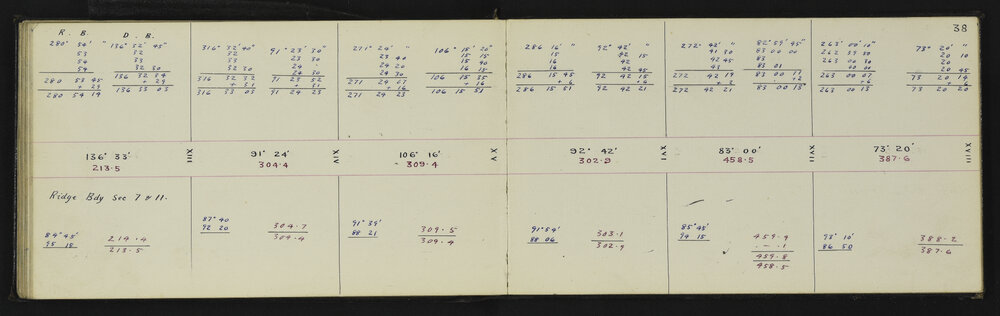 38
R. B. D. B.
280° 54' " 136° 32' 45"
53 32
54 33
54 32 30
280 53 45 136 32 34
+ 29 + 29
280 54 14 136 33 03
316° 32' 40" 91° 23' 30"
32 23 30
33 24
32 30 24 30
316 32 32 91 23 52
+ 31 + 31
316 33 03 91 24 23
271° 24' " 106° 15' 20"
23 40 15 15
24 20 15 40
24 30 16 15
271 24 07 106 15 35
+ 16 + 16
271 24 23 106 15 51
286 16' " 92° 42' "
15 42 15
16 42
16 42 45
286 15 45 92 42 15
+6 +6
286 15 51 92 42 21
272° 42' " 82° 59' 45"
41 30 83 00 00
42 45 83
43 83 01
272 42 19 83 00 17
+2
272 42 21 83 00 15
263° 00' 10" 73° 20' "
262 59 50 20 10
263 00 30 20
20 45
263 00 07 73 20 14
+6 +6
263 00 13 73 20 20
136° 33'
213.5
XIII
91° 24'
304.4
XIV
106° 16'
309.4
XV
92° 42'
302.9
XVI
83° 00'
458.5
XVII
73° 20'
387.6
XVIII
Ridge Bdy Sec 7 & 11.
84° 45' 214.4
95 15 213.5
87° 40 304.7
92 20 304.4
91° 39' 309.5
88 21 309.4
91° 54' 303.1
88 06 302.9
85° 45' 459.9
94 15 .1
459.8
458.5
93° 10' 388.2
86 50 387.6